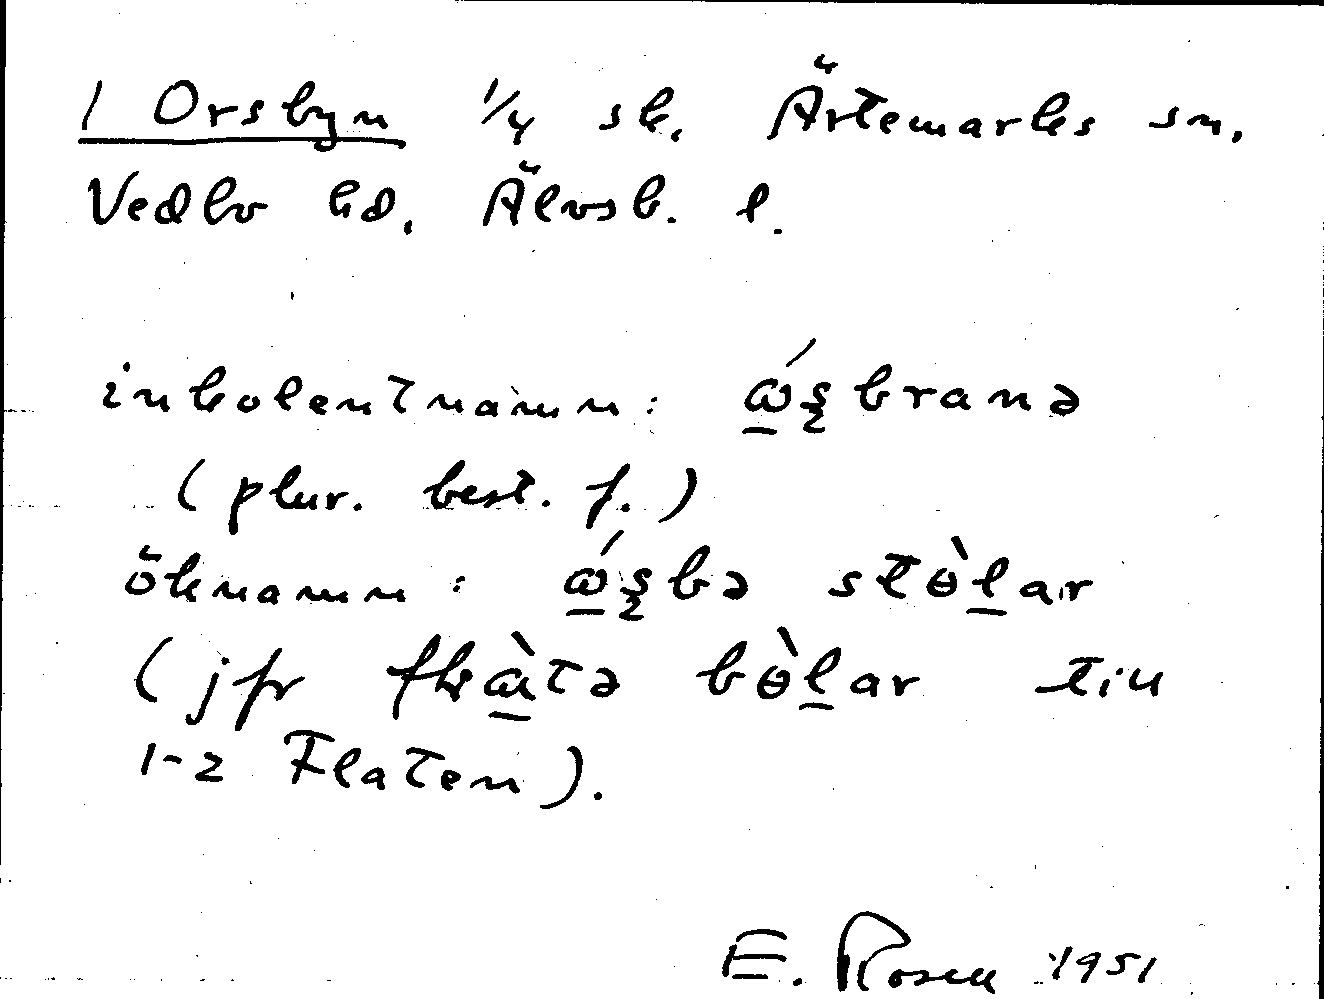 1 Orsbyn 1/4 sk. Ärtemarks sn.
Vedbo hd. Älvsb. l.
inkolentnamn: ώ̱ʂbranə
(plur. best. f.)
öknamn: ώ̱ʂbə stɵ̀ḻar
(jfr flὰ̱tə bɵ̀ḻar till
1-2 Flaten).
E. Rosell 1951